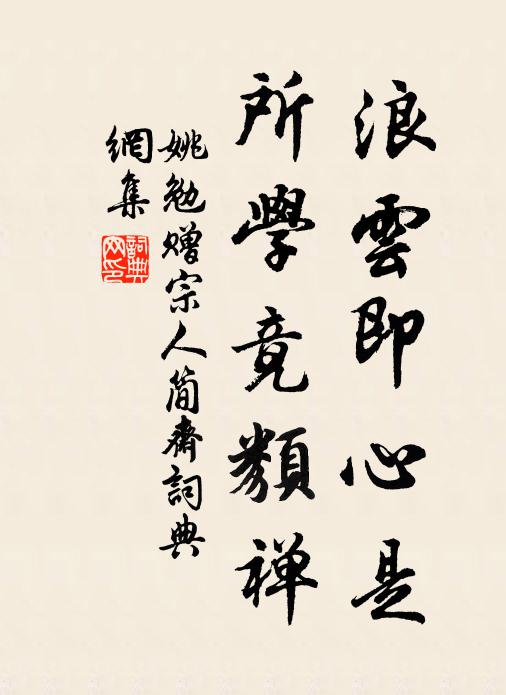 浪雲即心是
所學竟類禅
姚勉贈宗人簡齋詞典
網集
詞典
网印